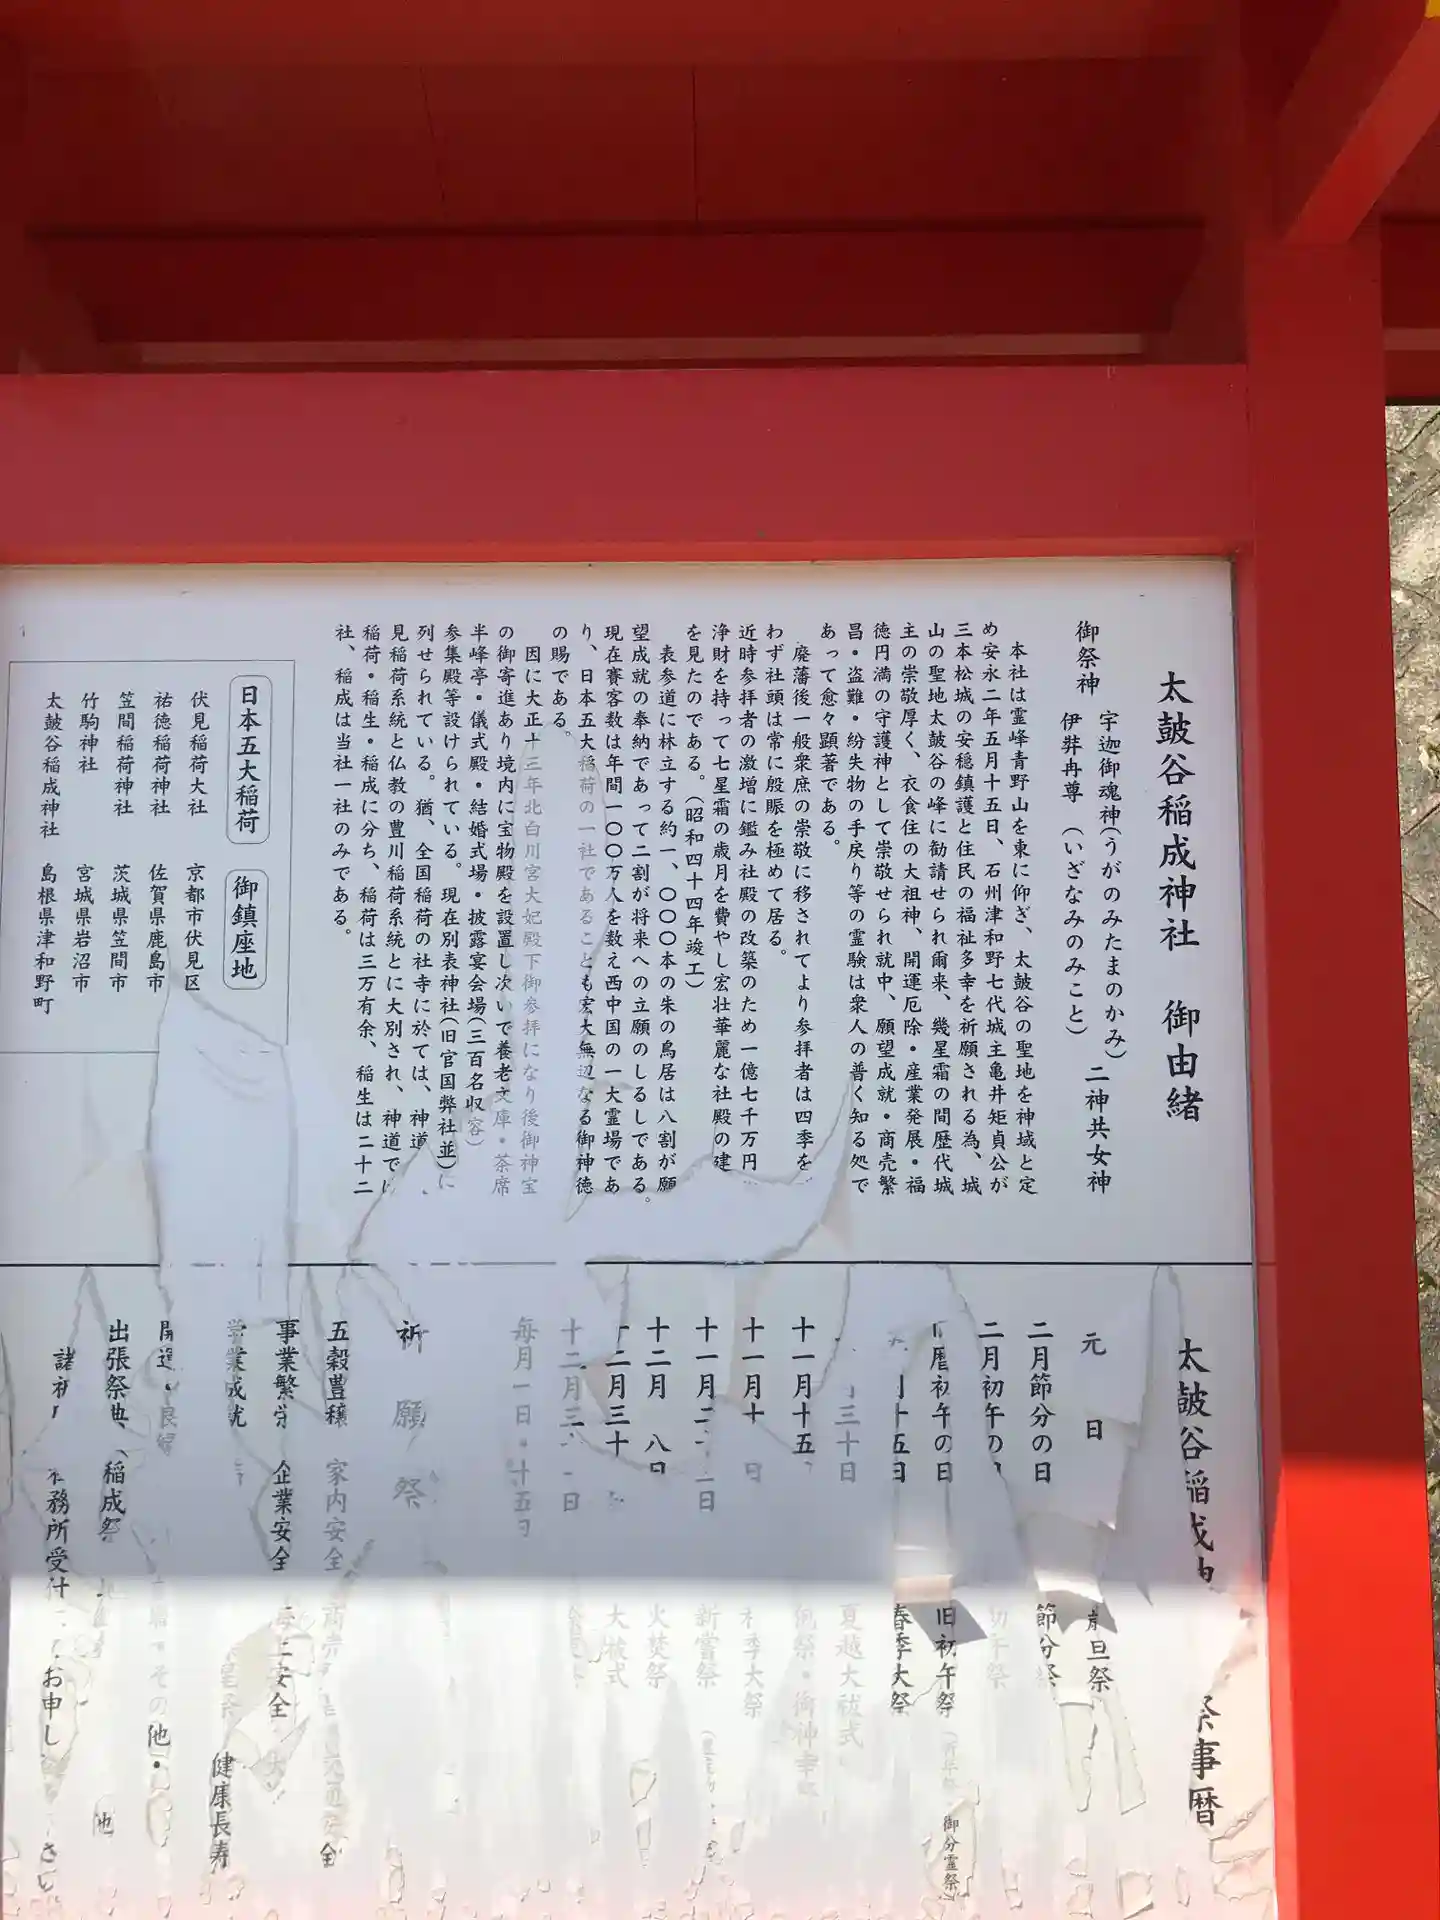 太皷谷稲成神社 御由緒
御祭神 宇迦御魂神(うがのみたまのかみ)
伊弉冉尊 (いざなみのみこと)
二神共女神
本社は霊峰青野山を東に仰ぎ、太皷谷の聖地を神域と定
め安永二年五月十五日、石州津和野七代城主亀井矩貞公が
三本松城の安穏鎮護と住民の福祉多幸を祈願される為、城
山の聖地太皷谷の峰に勧請せられ爾来、幾星霜の間歴代城
主の崇敬厚く、衣食住の大祖神、開運厄除・産業発展・福
徳円満の守護神として崇敬せられ就中、願望成就・商売繁
昌・盗難・紛失物の手戻り等の霊験は衆人の普く知る処で
あって愈々顕著である。
廃藩後一般衆庶の崇敬に移されてより参拝者は四季を
わず社頭は常に殷賑を極めて居る。
近時参拝者の激増に鑑み社殿の改築のため一億七千万円
浄財を持って七星霜の歳月を費やし宏壮華麗な社殿の建
を見たのである。(昭和四十四年竣工)
表参道に林立する約一、〇〇〇本の朱の鳥居は八割が願
望成就の奉納であって二割が将来への立願のしるしである。
現在賽客数は年間一〇〇万人を数え西中国の一大霊場であ
り、日本五大稲荷の一社であることも宏大無辺なる御神徳
の賜である。
因に大正十三年北白川宮大妃殿下御参拝になり後御神宝
の御寄進あり境内に宝物殿を設置し次いで養老文庫・茶席
半峰亭・儀式殿・結婚式場・披露宴会場(三百名収容)
参集殿等設けられている。現在別表神社(旧官国弊社並)に
列せられている。猶、全国稲荷の社寺に於ては、神道
見稲荷系統と仏教の豊川稲荷系統とに大別され、神道で
稲荷・稲生・稲成に分ち、稲荷は三万有余、稲生は二十二
社、稲成は当社一社のみである。
日本五大稲荷 御鎮座地
伏見稲荷大社 京都市伏見区
祐徳稲荷神社 佐賀県鹿島市
笠間稲荷神社 茨城県笠間市
竹駒神社 宮城県岩沼市
太皷谷稲成神社 島根県津和野町
太皷谷稲成 祭事暦
元日 旦祭
二月節分の日 節分祭
二月初午の 初午祭
旧暦初午の日 旧初午祭 御分霊祭
十五日 春季大祭
三十日 夏越大祓式
十一月十五 例祭・御神幸
十一月十 日 季大祭
十一月二 三日 新嘗祭
十二月 八日 火焚祭
十二月三十 大祓式
十二月三 一日
毎月一日・十五日
祈願祭
五穀豊穣 家内安全 商売 全
事業繁栄 企業安全 海上安全
学業成就 健康長寿
開運・良縁 その他・
出張祭典、(稲成祭 地 他
諸祈 社務所受付 お申し さい